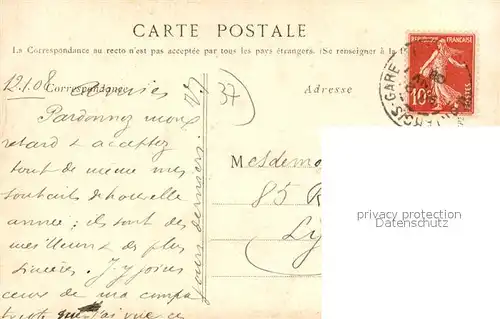 CARTE POSTALE
La Correspondance au recto n'est pas acceptée par tous les pays étrangers. (Se renseigner à la
Correspondance
Adresse
12.1.08
37
RÉPUBLIQUE FRANÇAISE
10
POSTES
GARE
Pardonnez mon
retard & acceptez
tout de même mes
souhaits de nouvelle
année ; ils sont des
meilleurs & des plus
sincères. J'y joins
ceux de ma
que j'ai vue ces
jours derniers.
Mesdemo
85 R
Ly
privacy protection
Datenschutz